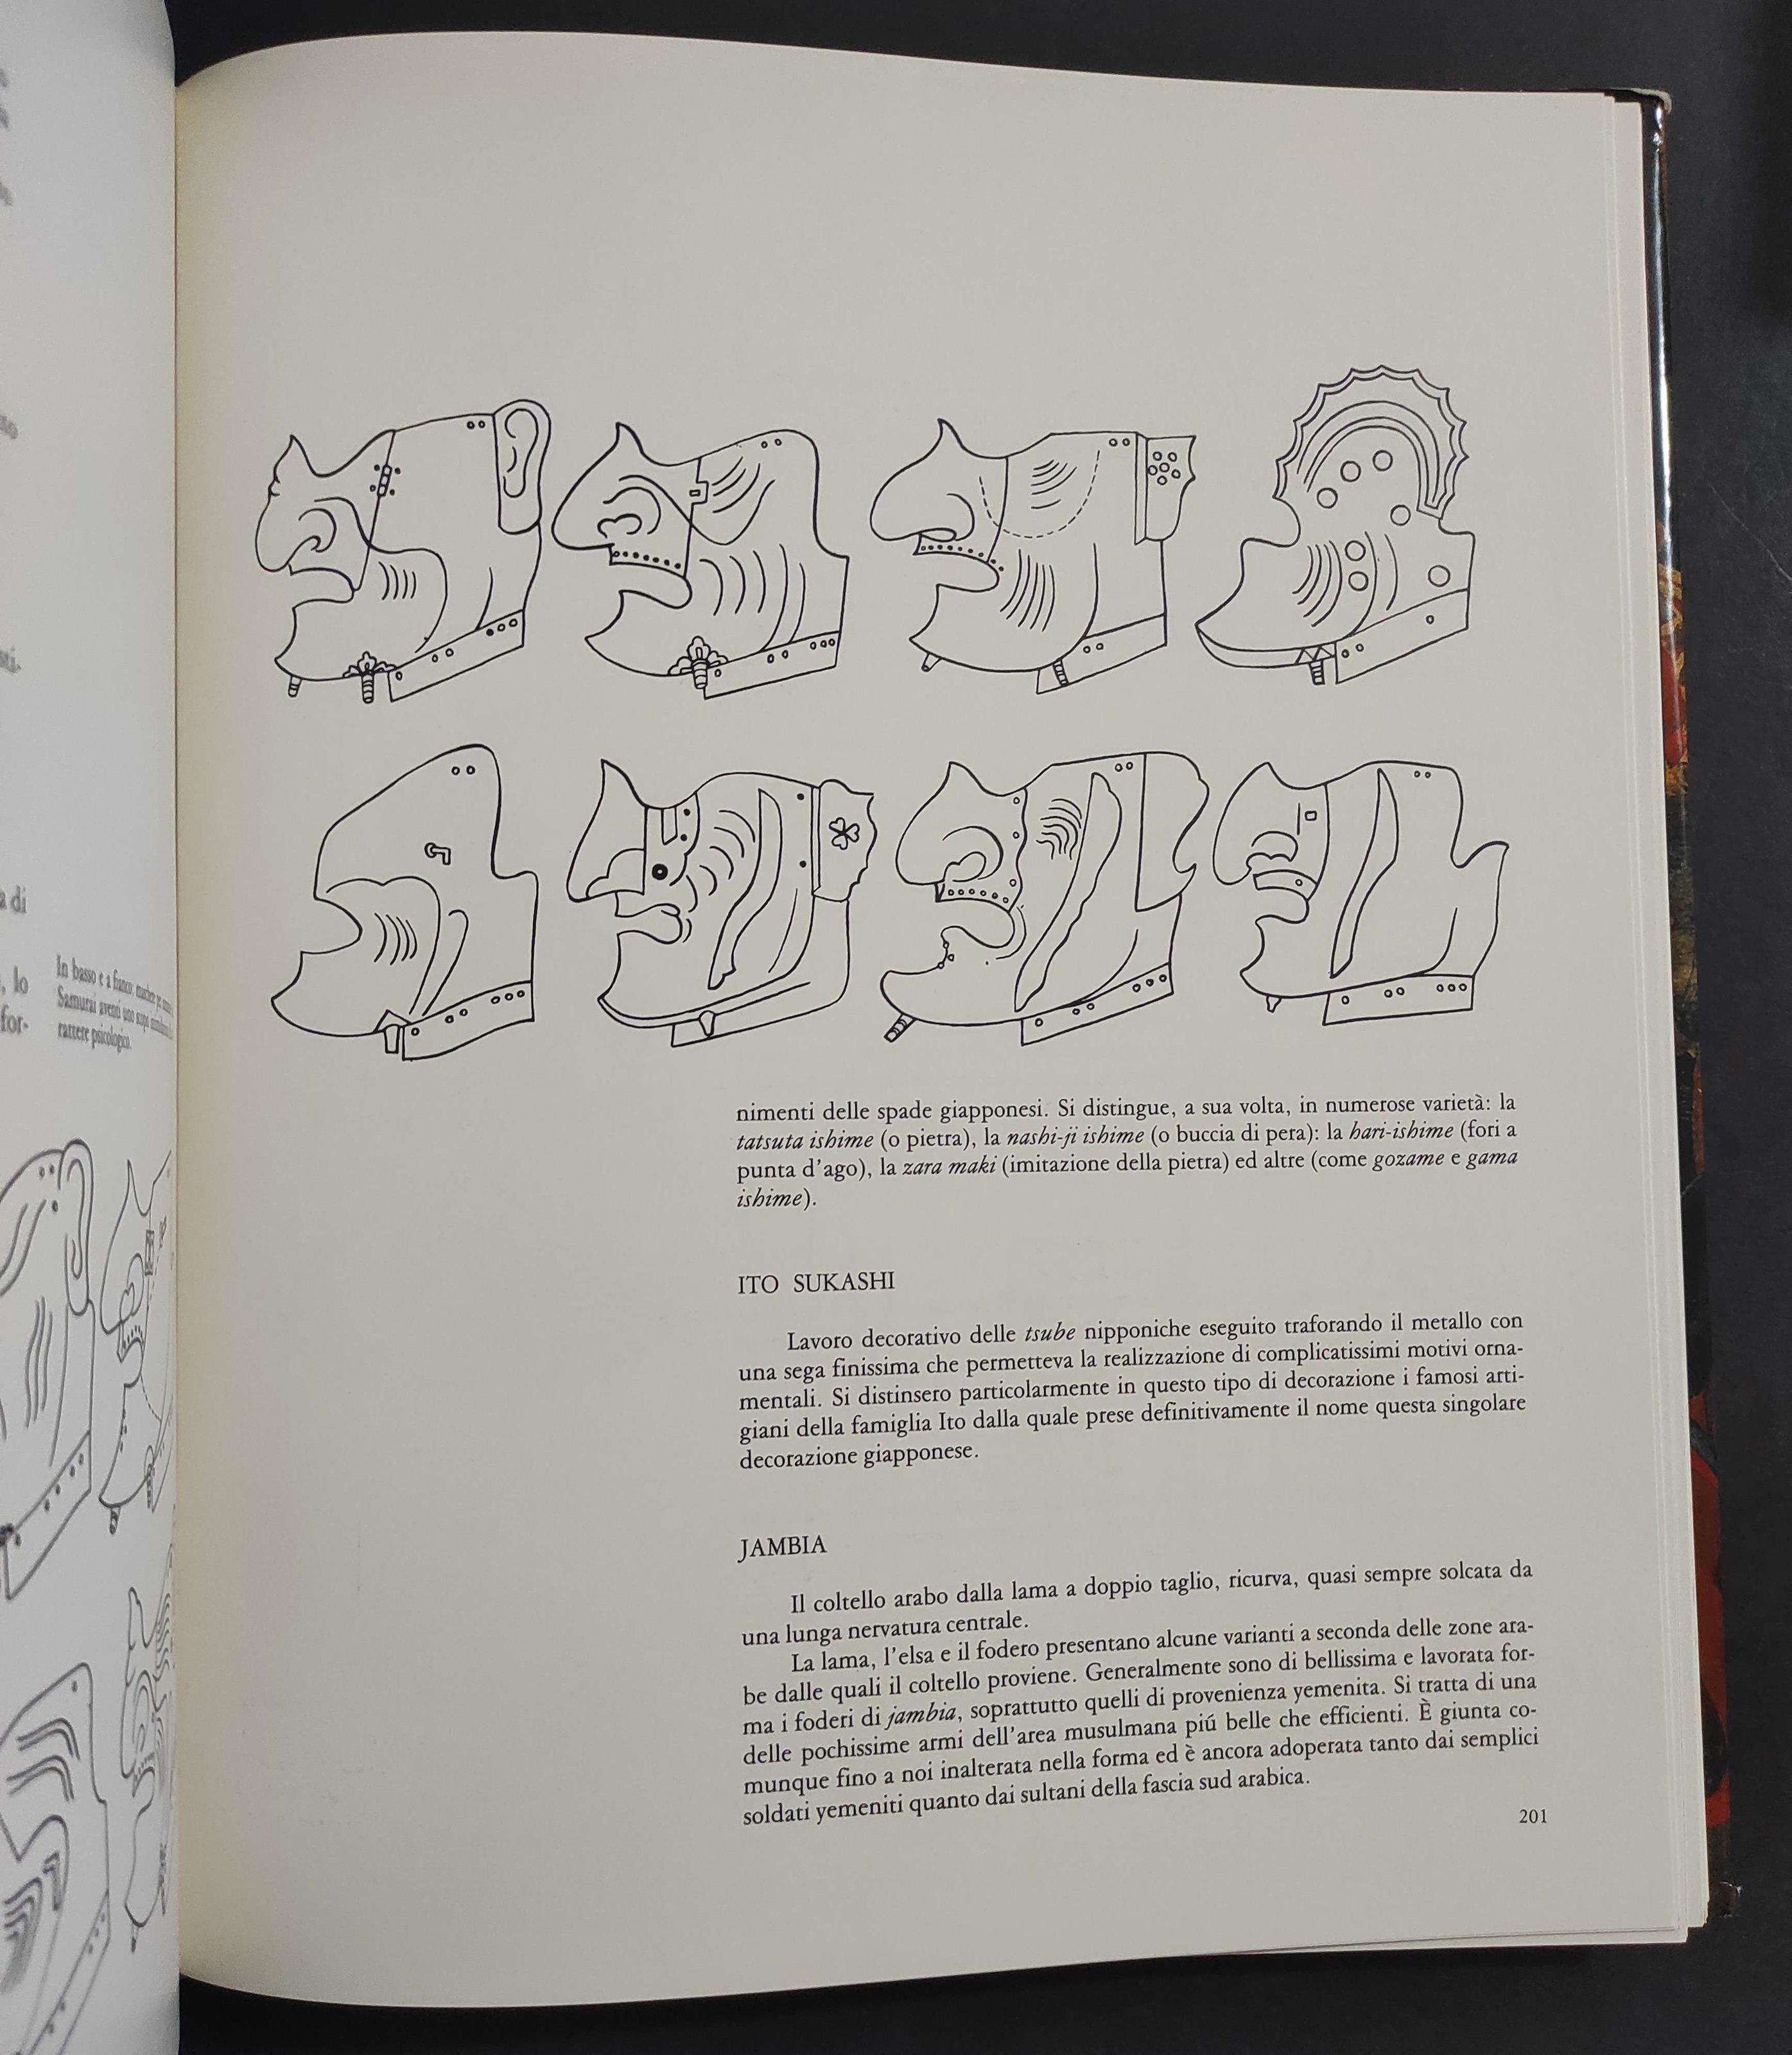 a di
, lo
for-
In basso e a fianco: maschere
Samurai aventi uno scopo
rattere psicologico.
nimenti delle spade giapponesi. Si distingue, a sua volta, in numerose varietà: la
tatsuta ishime (o pietra), la nashi-ji ishime (o buccia di pera): la hari-ishime (fori a
punta d'ago), la zara maki (imitazione della pietra) ed altre (come gozame e gama
ishime).
ITO SUKASHI
Lavoro decorativo delle tsube nipponiche eseguito traforando il metallo con
una sega finissima che permetteva la realizzazione di complicatissimi motivi orna-
mentali. Si distinsero particolarmente in questo tipo di decorazione i famosi arti-
giani della famiglia Ito dalla quale prese definitivamente il nome questa singolare
decorazione giapponese.
JAMBIA
Il coltello arabo dalla lama a doppio taglio, ricurva, quasi sempre solcata da
una lunga nervatura centrale.
La lama, l'elsa e il fodero presentano alcune varianti a seconda delle zone ara-
be dalle quali il coltello proviene. Generalmente sono di bellissima e lavorata for-
ma i foderi di jambia, soprattutto quelli di provenienza yemenita. Si tratta di una
delle pochissime armi dell'area musulmana piú belle che efficienti. È giunta co-
munque fino a noi inalterata nella forma ed è ancora adoperata tanto dai semplici
soldati yemeniti quanto dai sultani della fascia sud arabica.
201